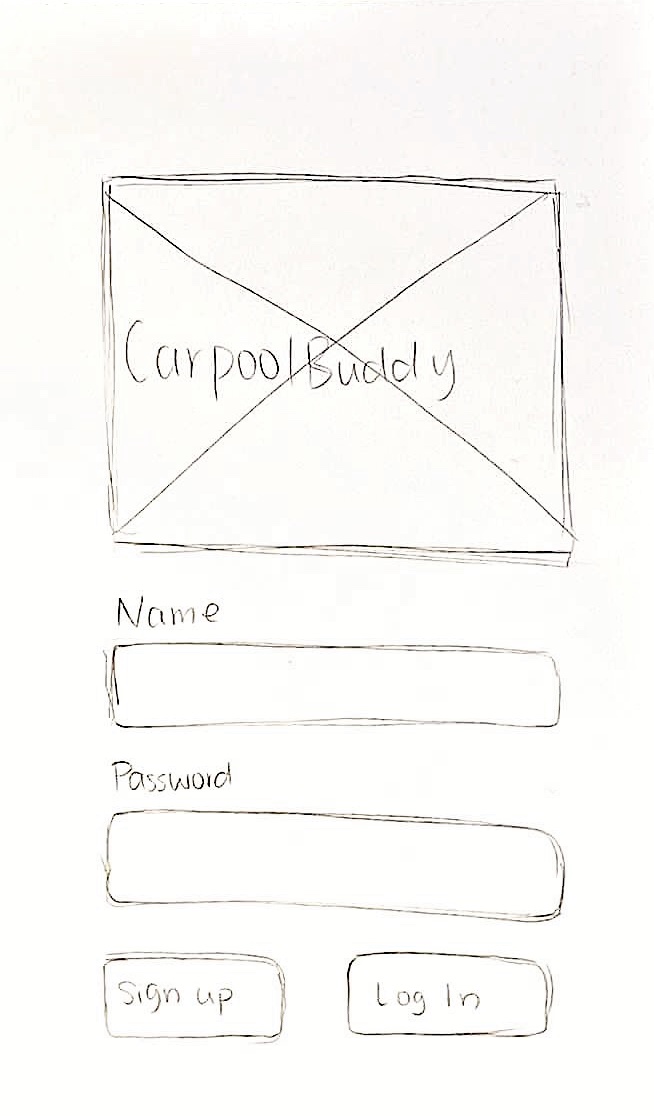 CarpoolBuddy
Name
Password
Sign up
Log In